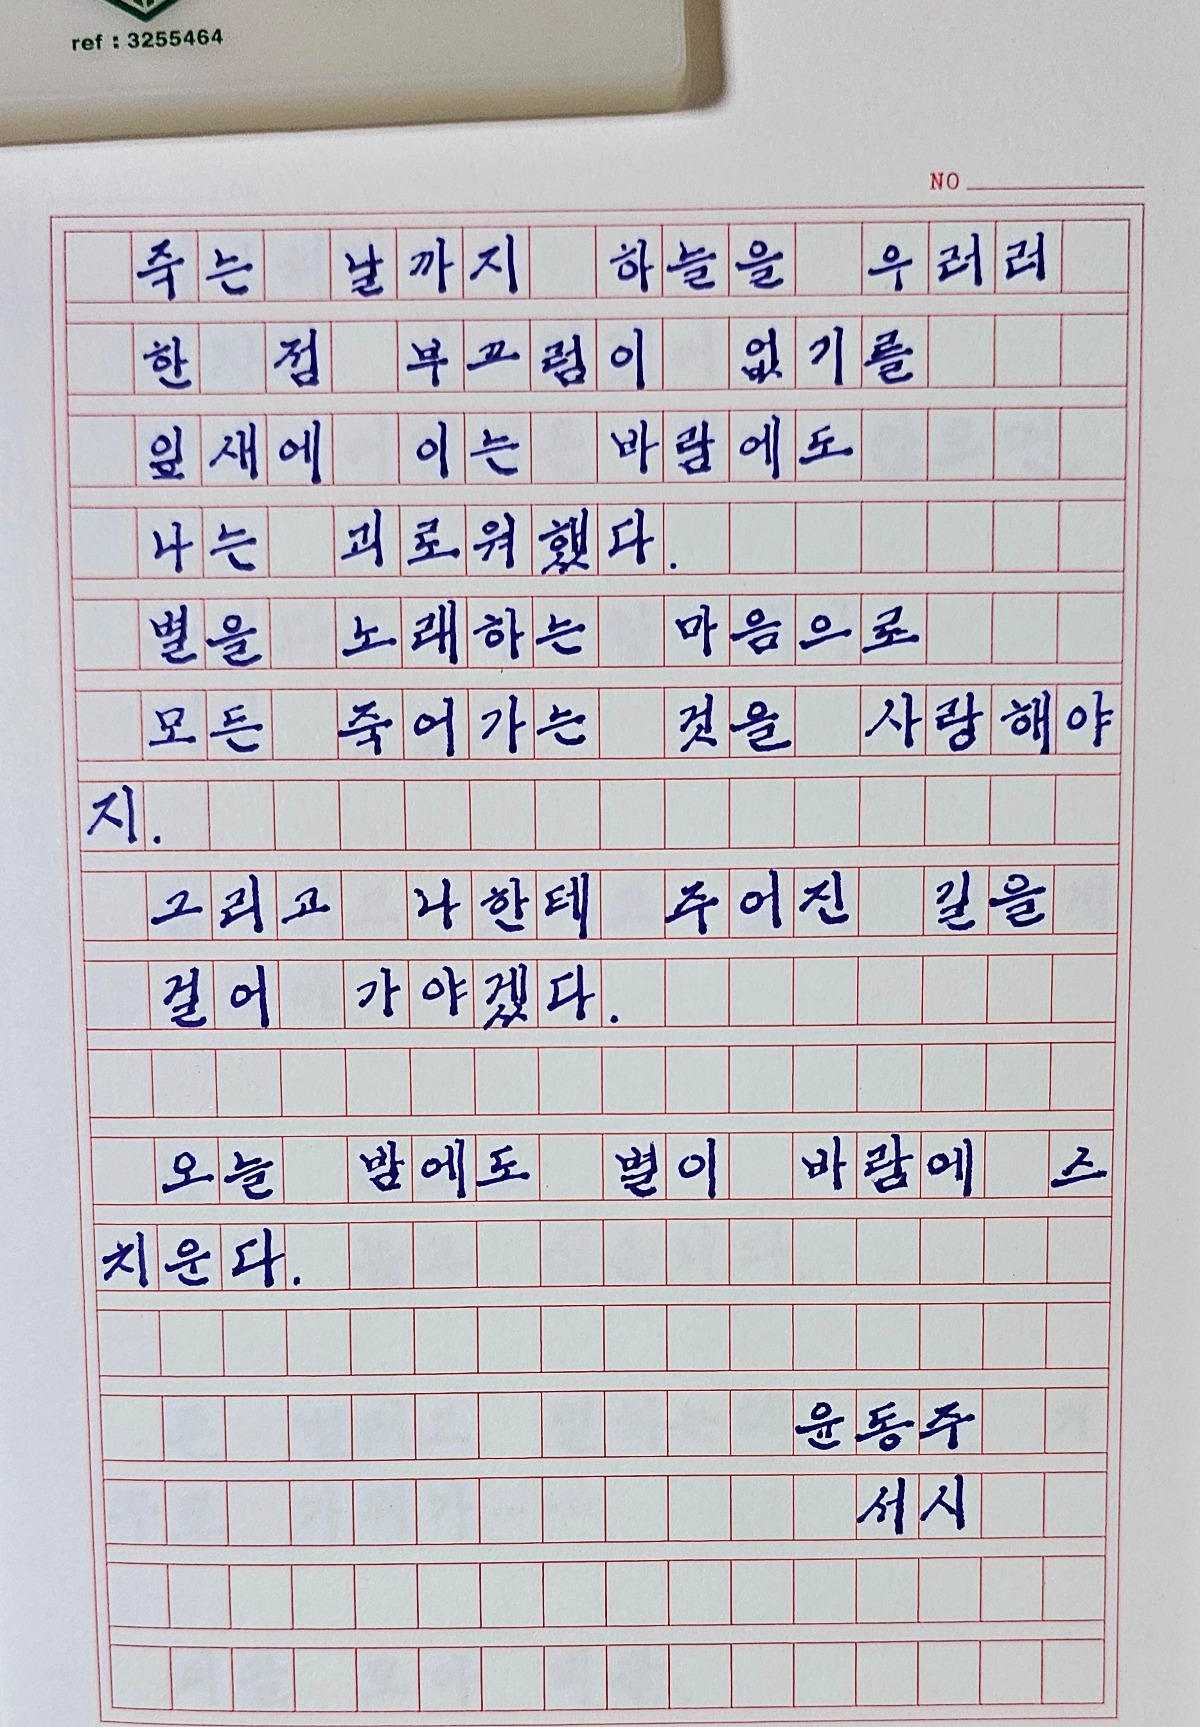 ref : 3255464
NO
죽는 날까지 하늘을 우러러
한 점 부끄럼이 없기를
잎새에 이는 바람에도
나는 괴로워했다.
별을 노래하는 마음으로
모든 죽어가는 것을 사랑해야
지.
그리고 나한테 주어진 길을
걸어 가야겠다.
오늘 밤에도 별이 바람에 스
치운다.
윤동주
서시